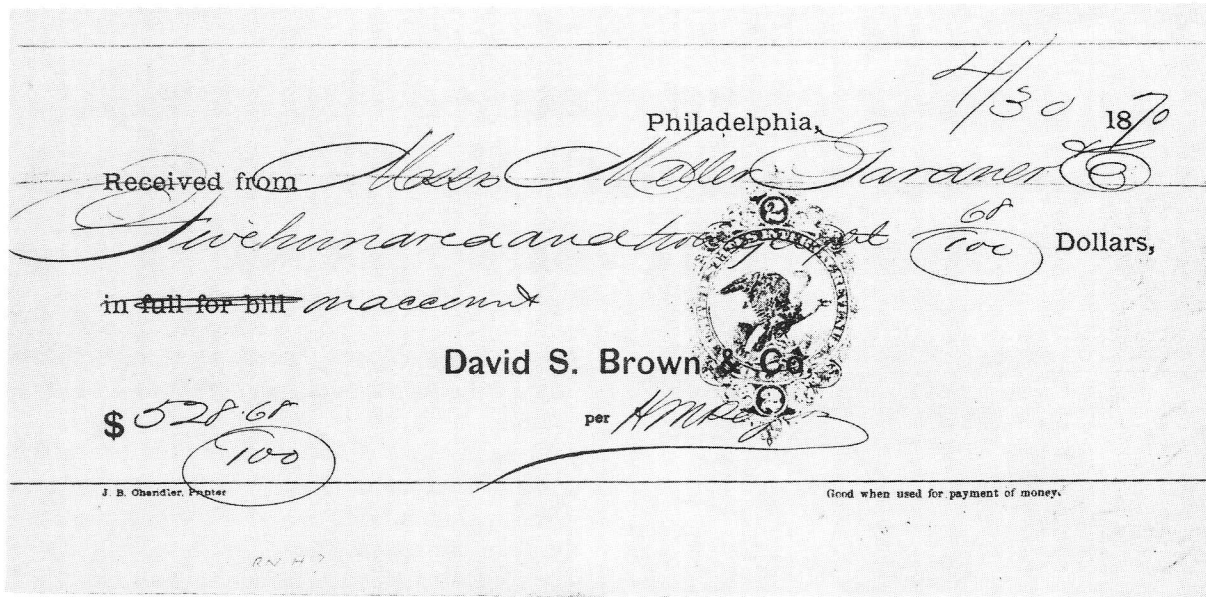 4/30
Philadelphia, 1870
Received from Moses Meller Gardner & Co
Five hundred and twenty eight 68/100 Dollars,
in full for bill on account
David S. Brown & Co.
$ 528.68/100 per
J. B. Chandler, Printer Good when used for payment of money.
RN H 7